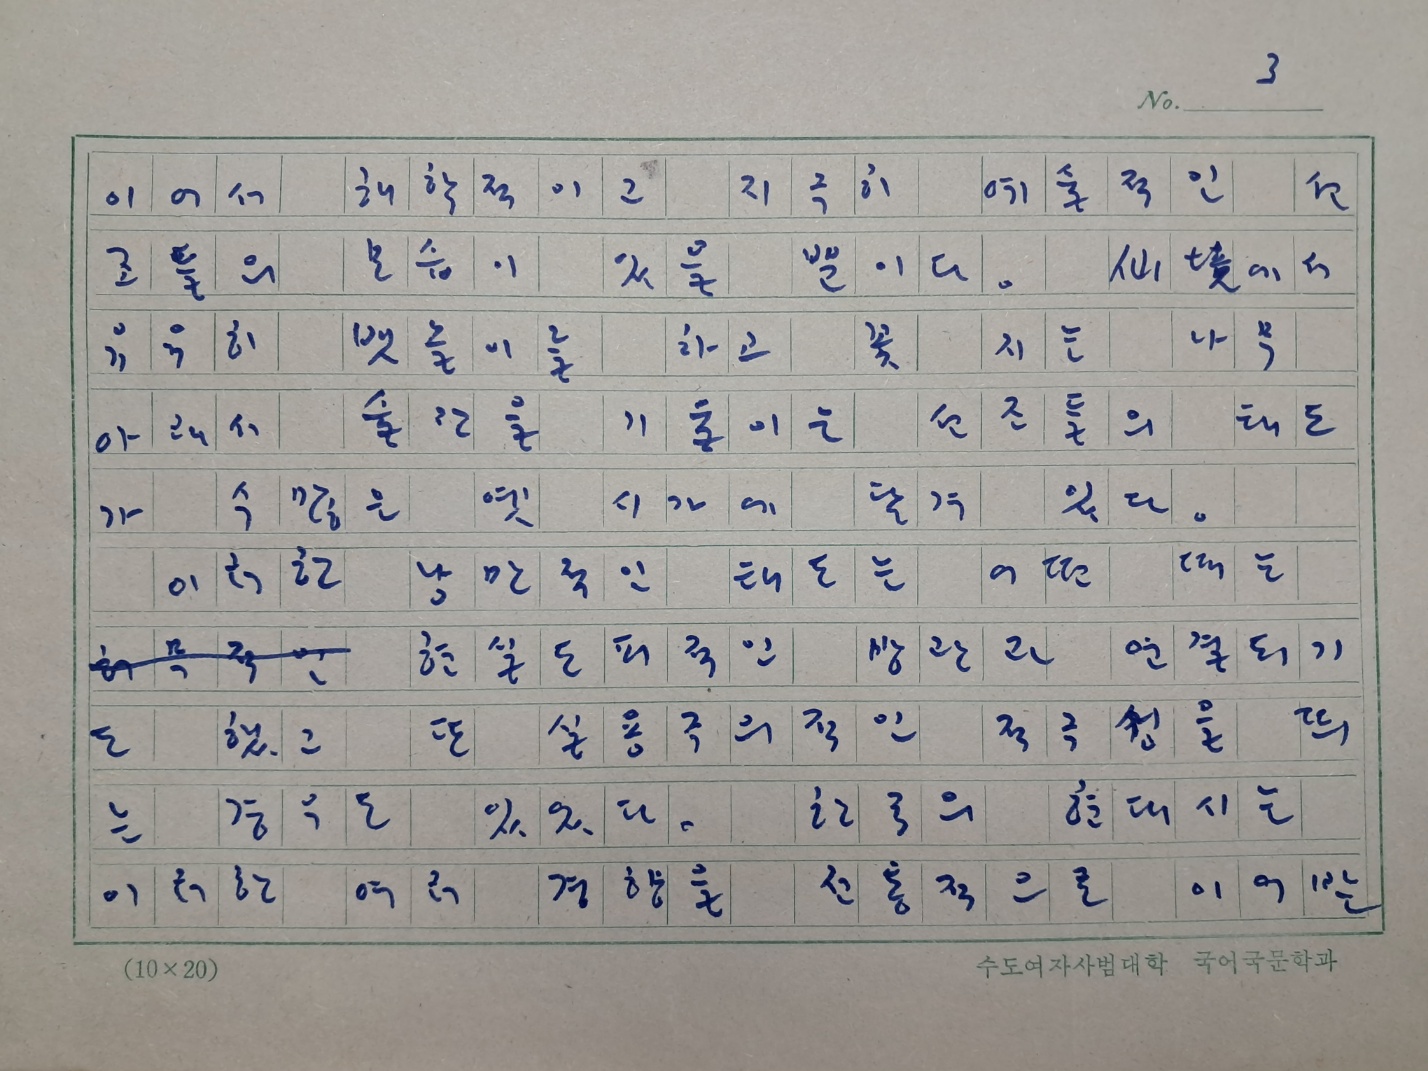 No. 3
이어서 해학적이고 지극히 예술적인 선
조들의 모습이 있을 뿐이다。 仙境에서
유유히 뱃놀이를 하고 꽃 지는 나무
아래서 술잔을 기울이는 선조들의 태도
가 수많은 옛 시가에 담겨 있다。
이러한 낭만적인 태도는 어떤 때는
허무적인 현실도피적인 방관과 연결되기
도 했고 또 실용주의적인 적극성을 띄
는 경우도 있었다。 한국의 현대시는
이러한 여러 경향을 전통적으로 이어받는
(10×20) 수도여자사범대학 국어국문학과